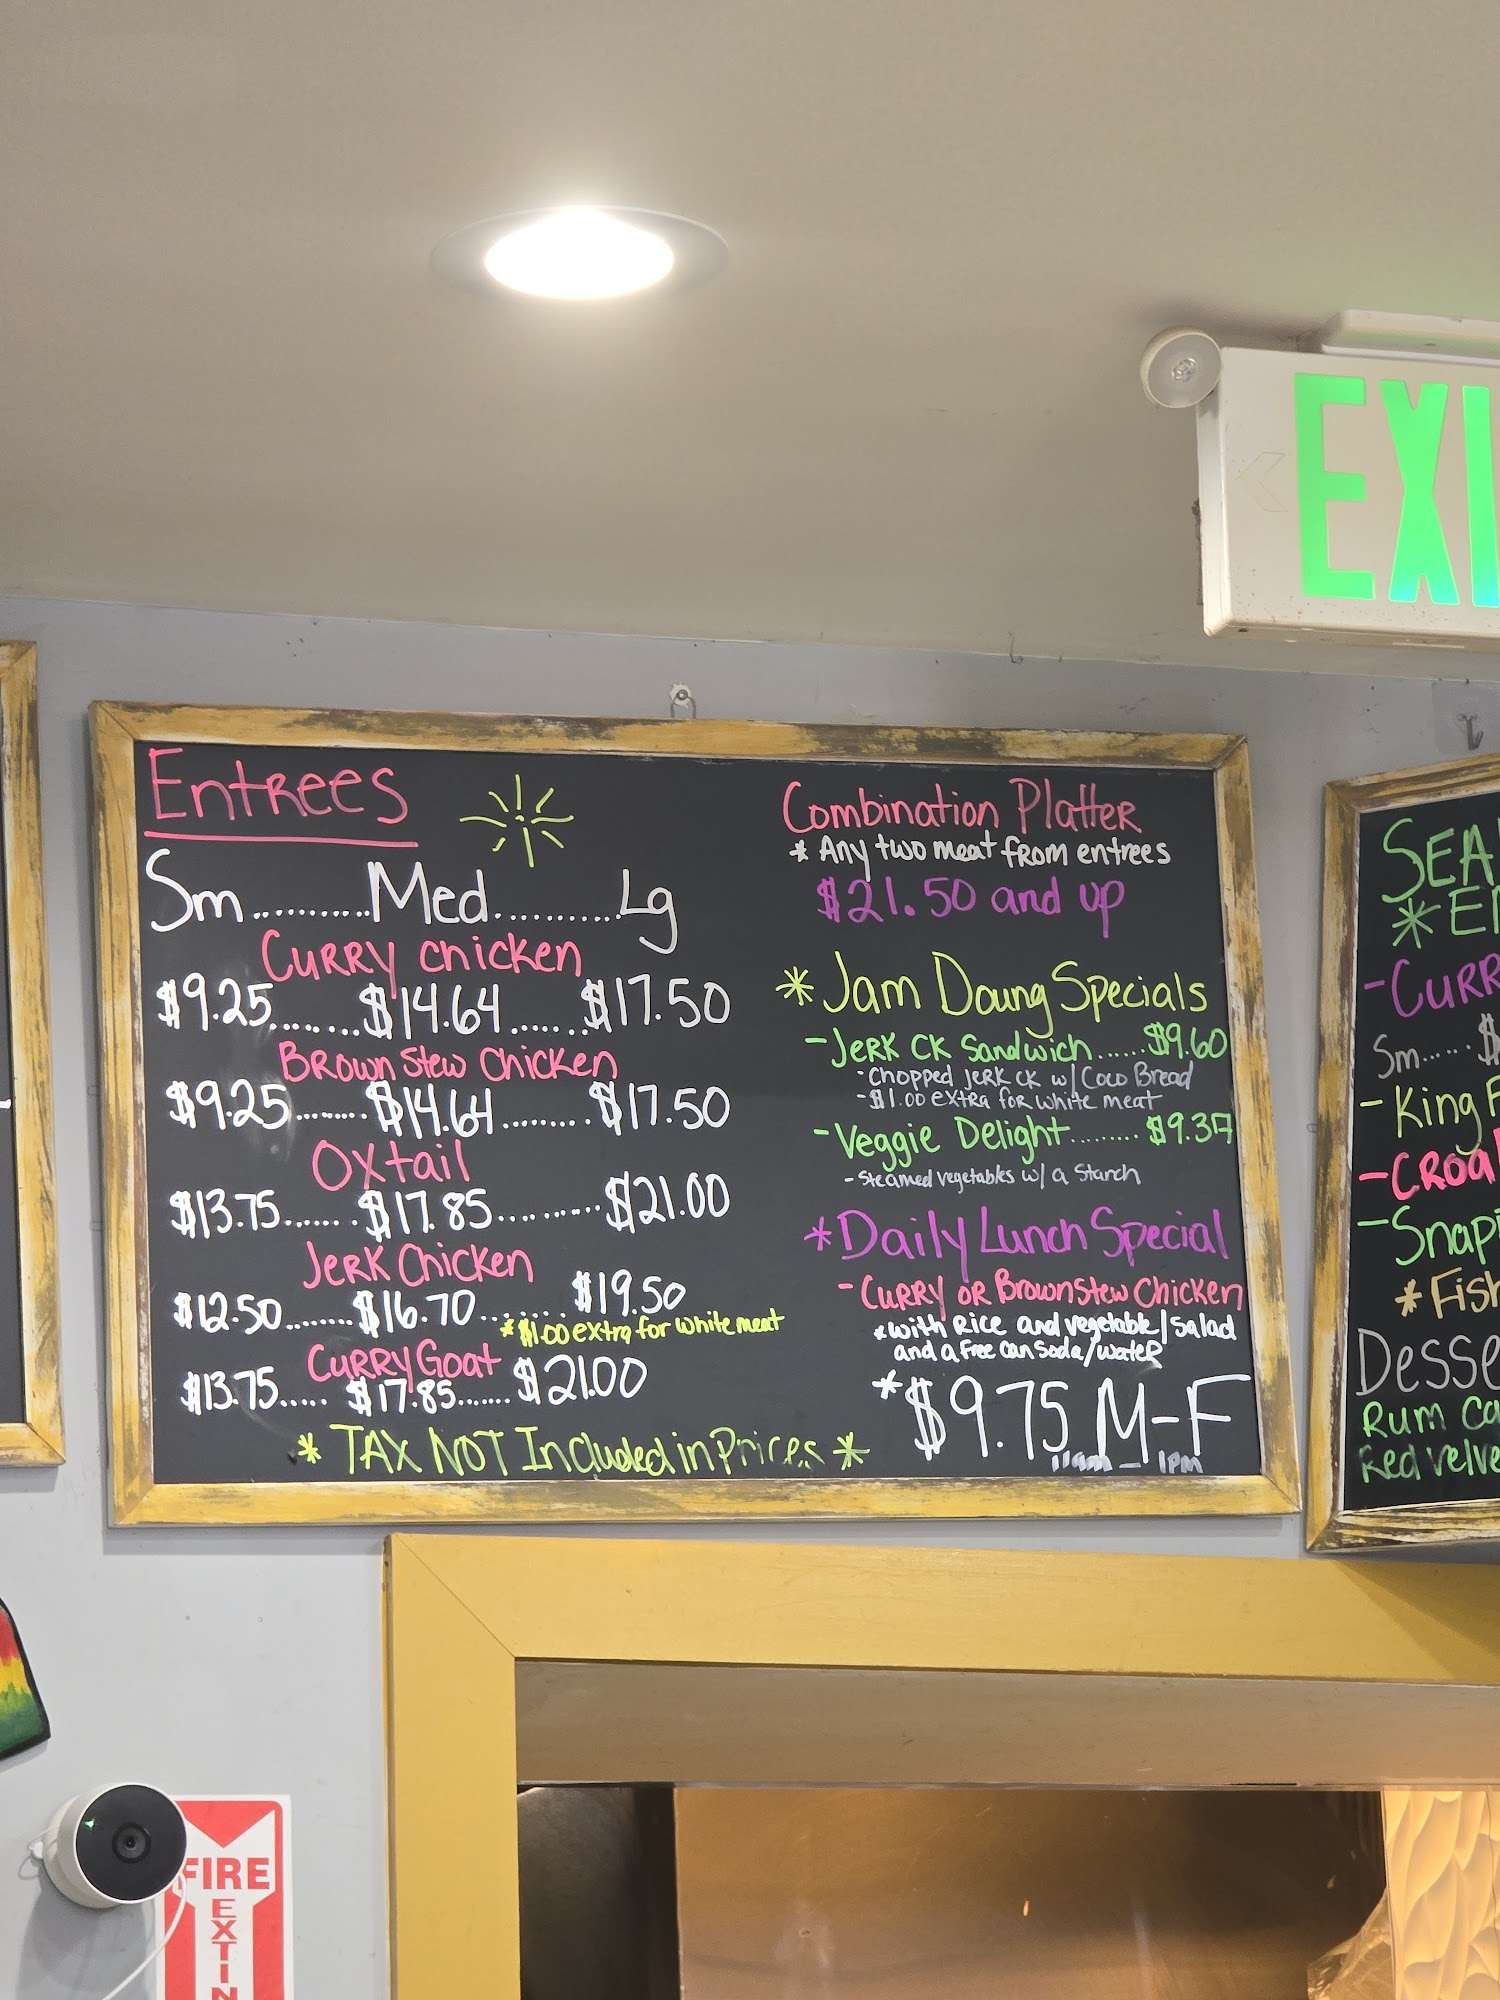 EXI
Entrees
Sm..........Med...........Lg
Curry Chicken
$9.25........$14.64.......$17.50
Brown Stew Chicken
$9.25........$14.64.........$17.50
Oxtail
$13.75.......$17.85..........$21.00
Jerk Chicken
$12.50.......$16.70........$19.50
*$1.00 extra for white meat
Curry Goat
$13.75.....$17.85.......$21.00
* TAX NOT Included in Prices *
Combination Platter
* Any two meat from entrees
$21.50 and up
*Jam Doung Specials
-Jerk CK Sandwich......$9.60
-Chopped Jerk CK w/ Coco Bread
-$1.00 extra for white meat
-Veggie Delight.........$9.37
-Steamed vegetables w/ a Starch
*Daily Lunch Special
-Curry or Brown Stew Chicken
*with Rice and vegetable/salad
and a free can soda/water
*$9.75 M-F
11am - 1pm
SEA
-CURR
Sm.....$
-King F
-CROA
-Snap
*Fish
Desse
Rum Ca
Red velve
FIRE
EXTIN